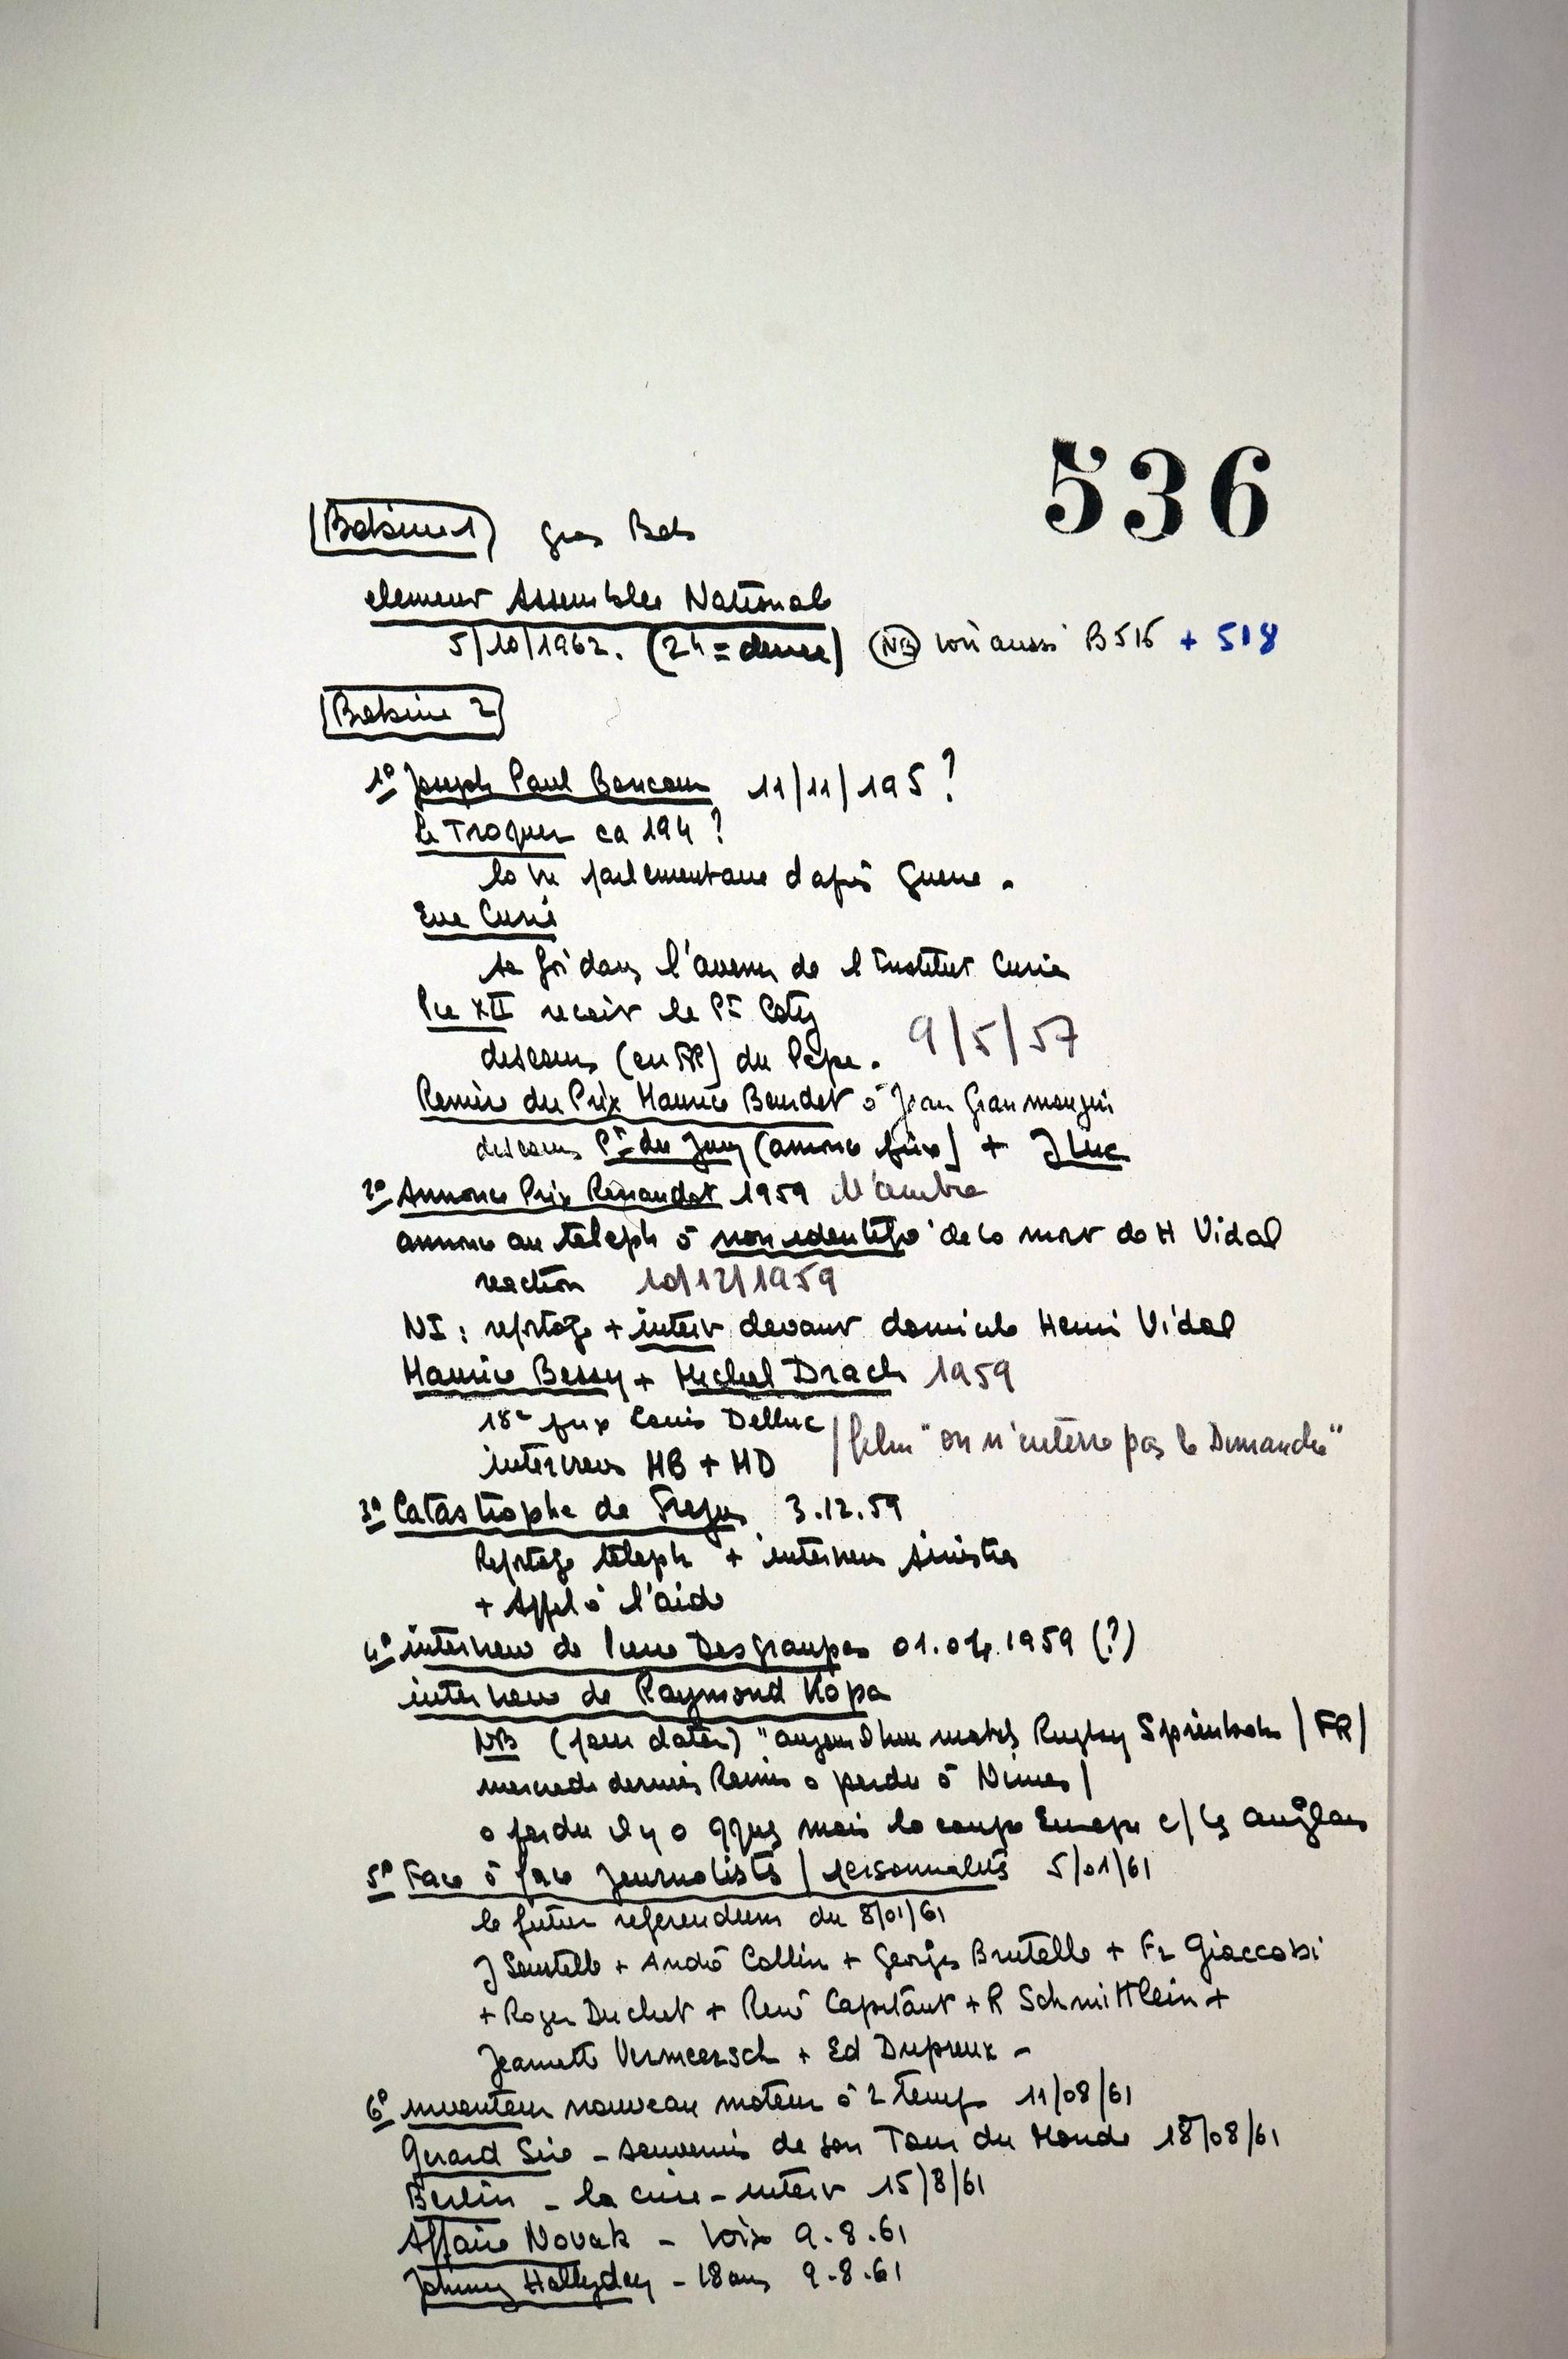 536
Bobine 1 gros Bob
element Assemblee National
5/10/1962. (24 = ) NB voir aussi B 516 + 518
Bobine 2
1° Joseph Paul Boncour 11/11/195?
Le Troquer ca 194?
la vie parlementaire d'après guerre.
Eve Curie
sa foi dans l'avenir de l'Institut Curie
Pie XII recoit le Pt Coty
discours (en FR) du Pape. 9/5/57
Remise du Prix Maurice Bourdet à Jean
discours Pt du Jury (annonce prix) + J Luc
2° Annonce Prix Renaudot 1959
annonce au teleph à non identifié de la mort de H Vidal
reaction 10/12/1959
NI : reportage + interv devant domicile Henri Vidal
Maurice Bessy + Michel Drach 1959
18e prix Louis Delluc
interviews MB + MD / film "on n'enterre pas le Dimanche"
3° Catastrophe de Frejus 3.12.59
Reportage teleph + interviews sinistres
+ Appel à l'aide
4° interview de Pierre Desgraupes 01.04.1959 (?)
interview de Raymond Kopa
NB (pour dater) "aujourdhui match Rugby / FR/
mercredi dernier Reims a perdu à Nimes/
a perdu il y a qques mois la coupe Europe c/ les anglais
5° Face à face Journalistes / personnalités 5/01/61
le futur referendum du 8/01/61
J Soustelle + André Collin + Georges Brutelle + Fr Giaccobi
+ Roger Duchet + René Capitant + R Schmittlein +
Jeannette Vermeersch + Ed Depreux -
6° inventeur nouveau moteur à 2 temps 11/08/61
Gerard Sire - souvenirs de son Tour du Monde 18/08/61
Berlin - la crise - interv 15/8/61
Affaire Novak - voix 9.8.61
Johnny Hallyday - 18 ans 9.8.61